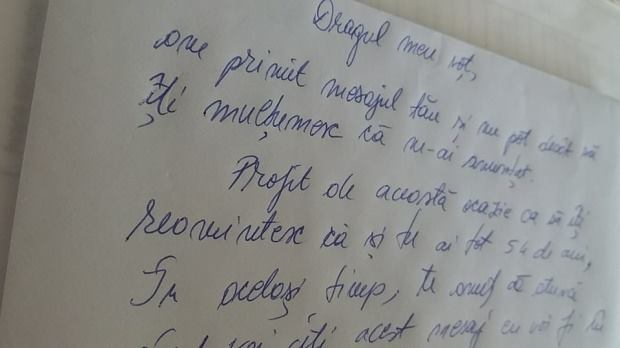 Dragul meu soț,
am primit mesajul tău și nu pot decât să
îți mulțumesc că m-ai anunțat.
Profit de această ocazie ca să îți
reamintesc că și tu ai tot 54 de ani,
În același timp, te anunț că atunci
acest mesaj eu voi fi